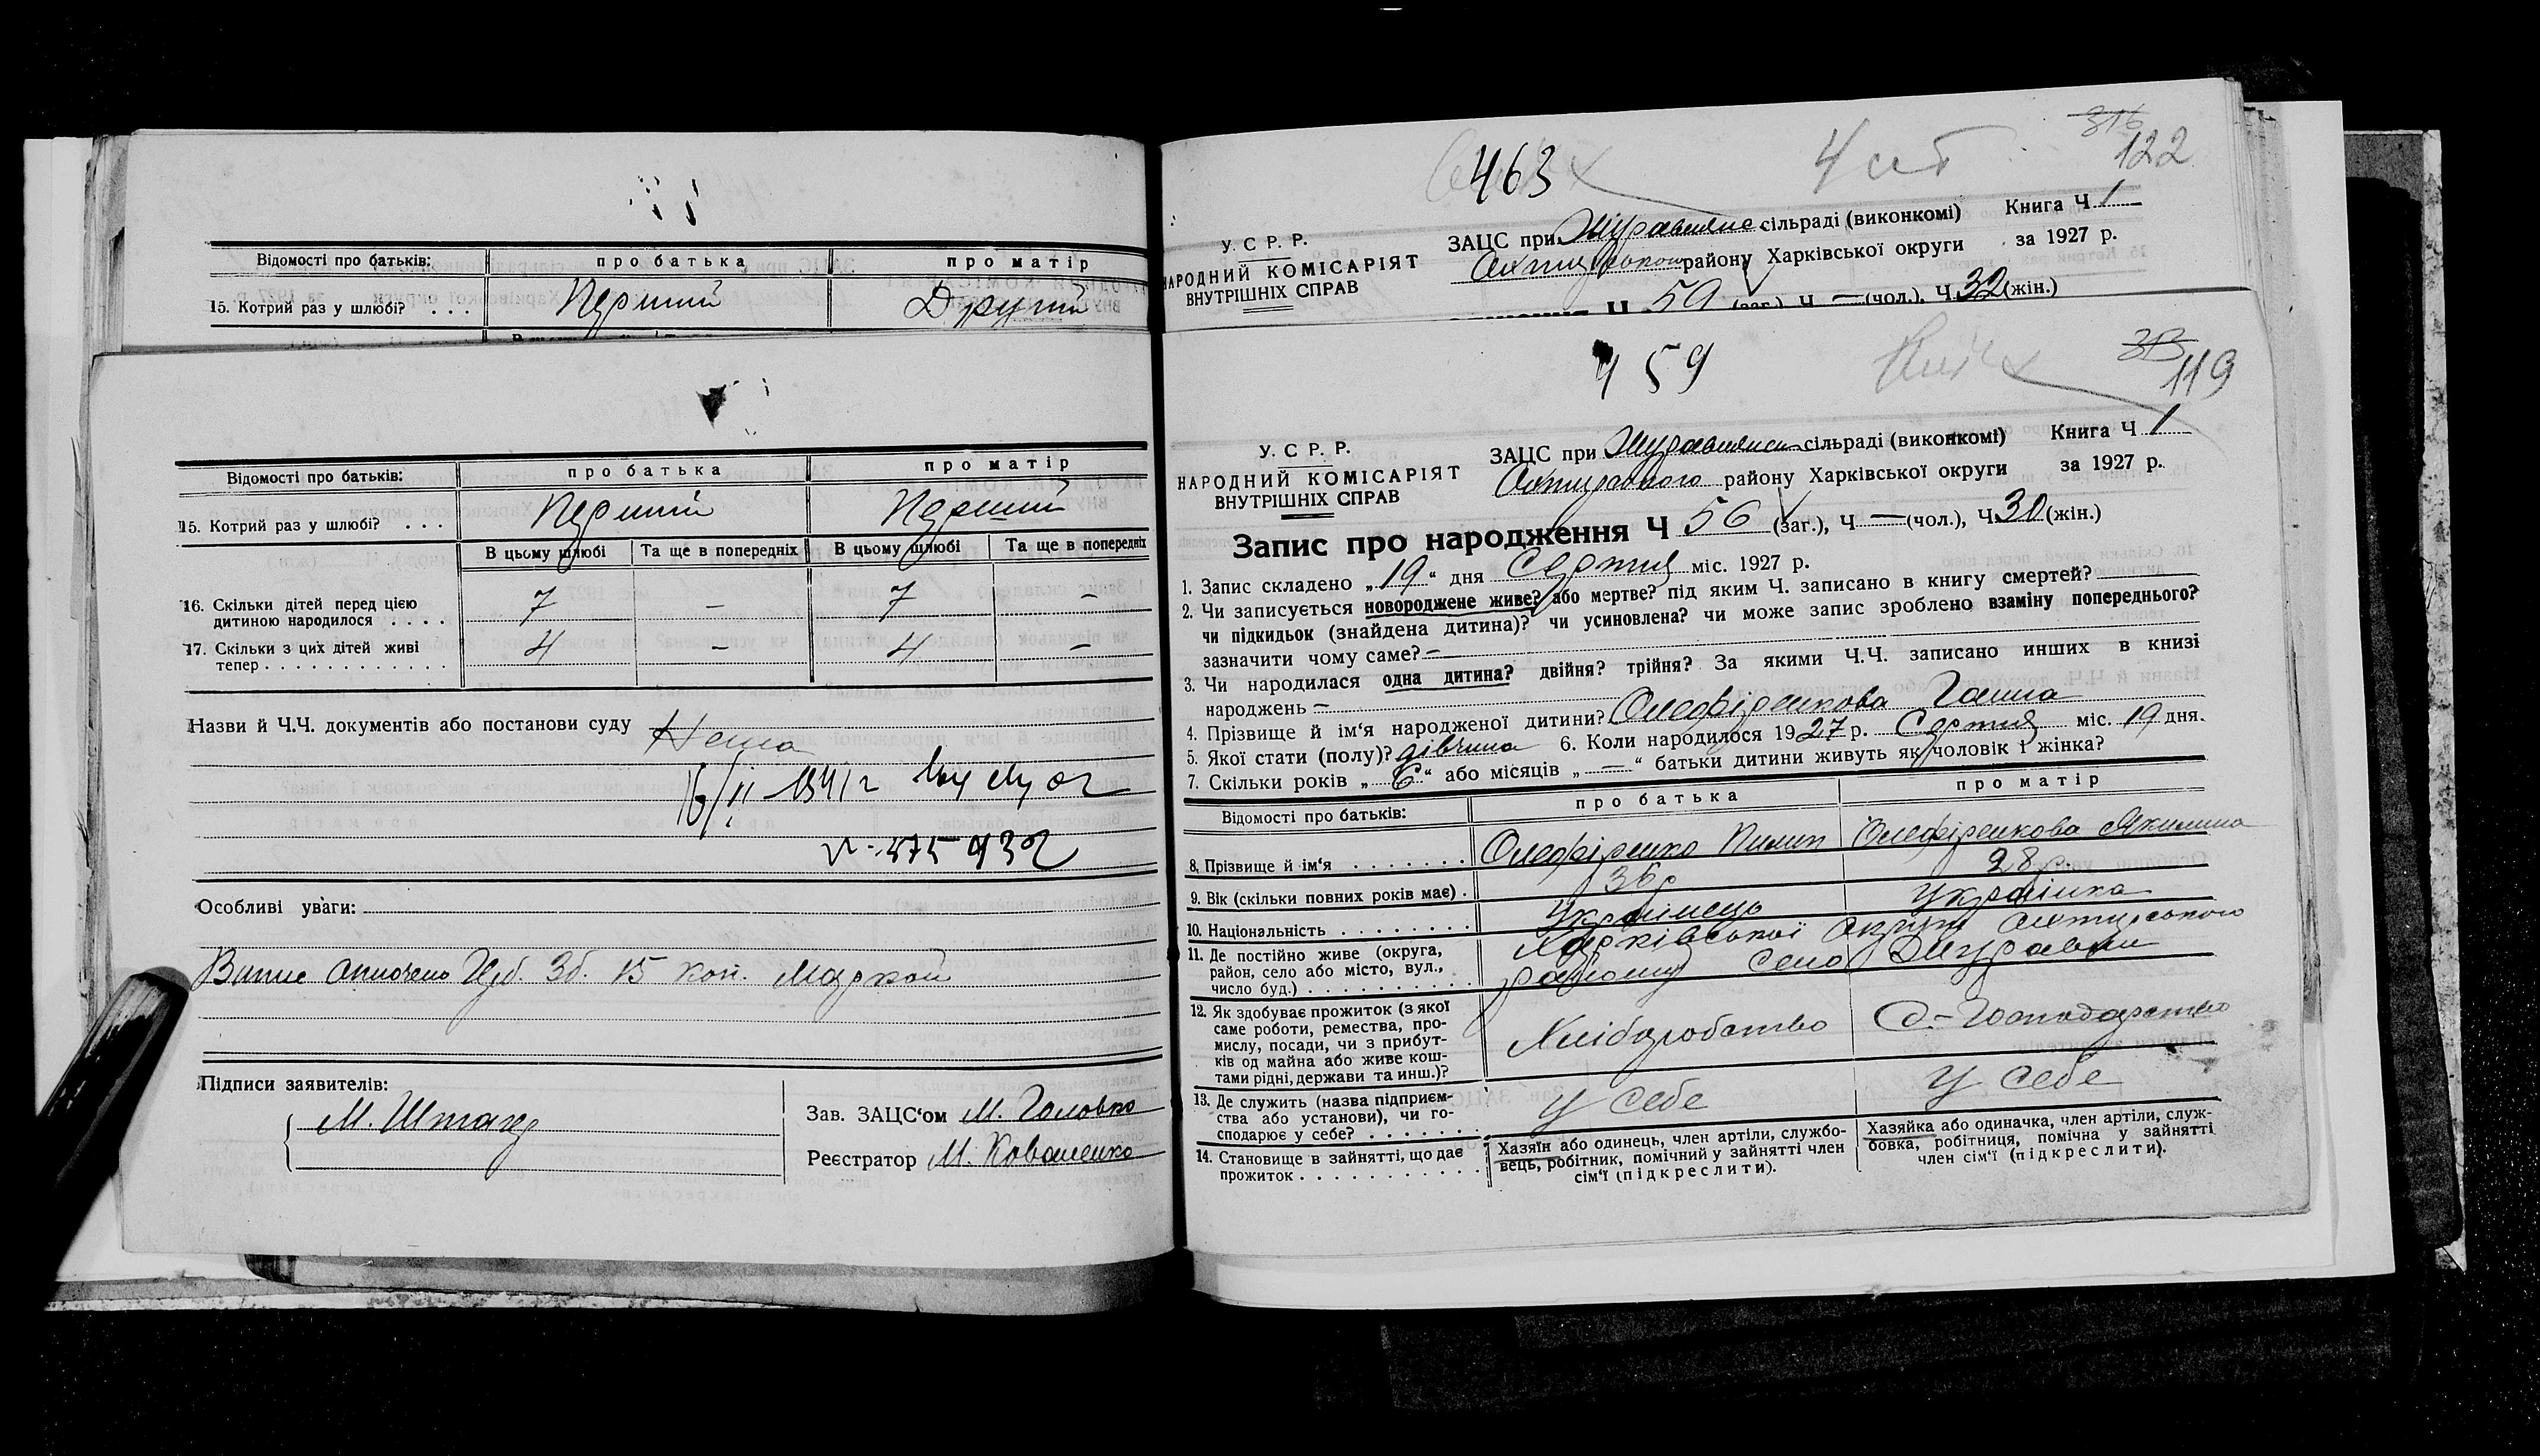 Відомості про батьків:
про батька
про матір
15. Котрий раз у шлюбі? . . .
Перший
Другий
Відомості про батьків:
про батька
про матір
15. Котрий раз у шлюбі? . . .
Перший
Перший
В цьому шлюбі
Та ще в попередніх
В цьому шлюбі
Та ще в попередніх
16. Скільки дітей перед цією
дитиною народилося . . . .
7
–
7
–
17. Скільки з цих дітей живі
тепер . . . . . . . . . . . .
4
–
4
–
Назви й Ч.Ч. документів або постанови суду
Нема
Особливі уваги:
коп. Маркой
Підписи заявителів:
М. Штанд
Зав. ЗАЦС‘ом М. Головко
Реєстратор М. Коваленко
463
316
122
У. С. Р. Р.
НАРОДНИЙ КОМІСАРІЯТ
ВНУТРІШНІХ СПРАВ
ЗАЦС при сільраді (виконкомі)
Книга Ч 1
району Харківської округи
за 1927 р.
Ч 59 (заг.), Ч. — (чол.), Ч. 32 (жін.)
459
313
119
У. С. Р. Р.
НАРОДНИЙ КОМІСАРІЯТ
ВНУТРІШНІХ СПРАВ
ЗАЦС при сільраді (виконкомі)
Книга Ч 1
району Харківської округи
за 1927 р.
Запис про народження Ч 56 (заг.), Ч. — (чол.), Ч. 30 (жін.)
1. Запис складено „19“ дня Серпня міс. 1927 р.
2. Чи записується новороджене живе? або мертве? під яким Ч. записано в книгу смертей?
чи підкидьок (знайдена дитина)? чи усиновлена? чи може запис зроблено взаміну попереднього?
зазначити чому саме? –
3. Чи народилася одна дитина? двійня? трійня? За якими Ч.Ч. записано инших в книзі
народжень –
4. Прізвище й ім‘я народженої дитини? Олефіренкова Ганна
5. Якої стати (полу)? дівчина 6. Коли народилося 1927 р. Серпня міс. 19 дня.
7. Скільки років „6“ або місяців „—“ батьки дитини живуть як чоловік і жінка?
Відомості про батьків:
про батька
про матір
8. Прізвище й ім‘я . . . . . . .
Олефіренко Пилип
Олефіренкова Якилина
9. Вік (скільки повних років має) .
36 р
28 р.
10. Національність . . . . . . . .
Українець
Українка
11. Де постійно живе (округа,
район, село або місто, вул.,
число буд.) . . . . . . . . . .
Харківської Округи
району село
12. Як здобуває прожиток (з якої
саме роботи, ремества, про-
мислу, посади, чи з прибут-
ків од майна або живе кош-
тами рідні, держави та инш.)?
Хліборобство
С.-Господарство
13. Де служить (назва підприєм-
ства або установи), чи го-
сподарює у себе? . . . . . . .
У себе
У себе
14. Становище в зайнятті, що дає
прожиток . . . . . . . . . . .
Хазяїн або одинець, член артіли, службо-
вець, робітник, помічний у зайнятті член
сім‘ї (підкреслити).
Хазяйка або одиначка, член артіли, служ-
бовка, робітниця, помічна у зайнятті
член сім‘ї (підкреслити).